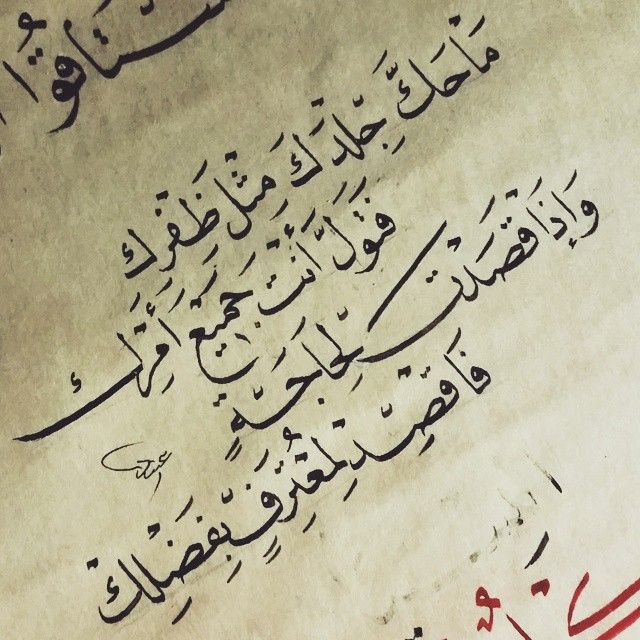 مَا حَكَّ جِلْدَكَ مِثْلَ ظِفْرِكَ
فَتَوَلَّ أَنْتَ جَمِيعَ أَمْرِكَ
وَإِذَا قَصَدْتَ لِحَاجَةٍ
فَاقْصِدْ لِمُعْتَرِفٍ بِفَضْلِكَ